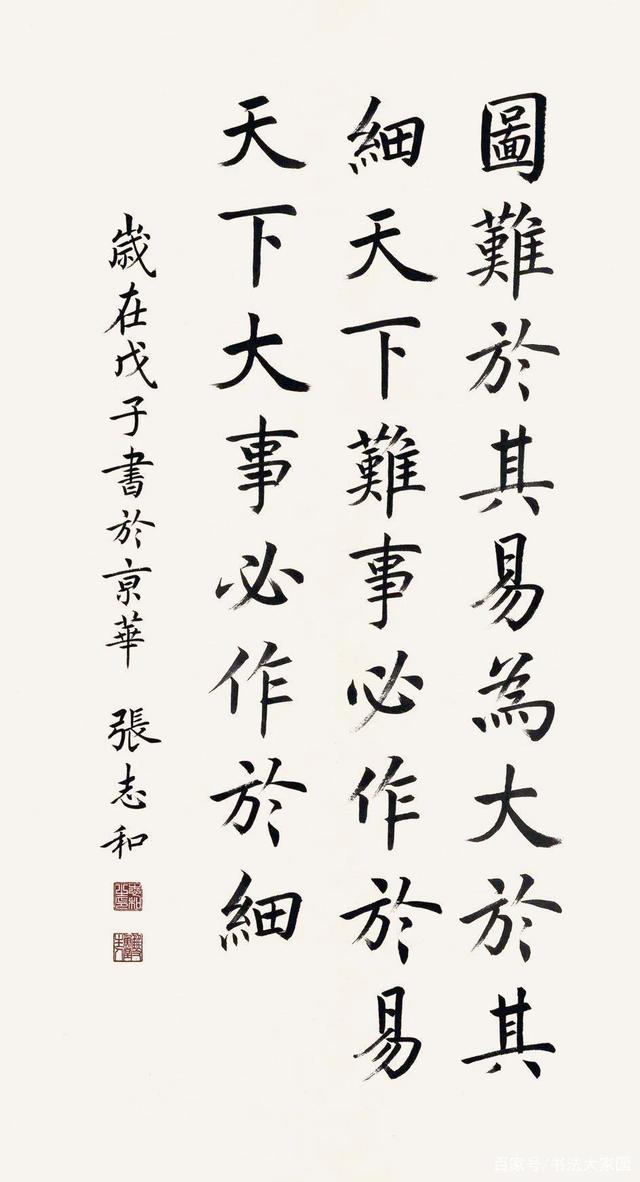 圖難於其易為大於其
細天下難事必作於易
天下大事必作於細
歲在戊子書於京華 張志和
百家号/书法大家园